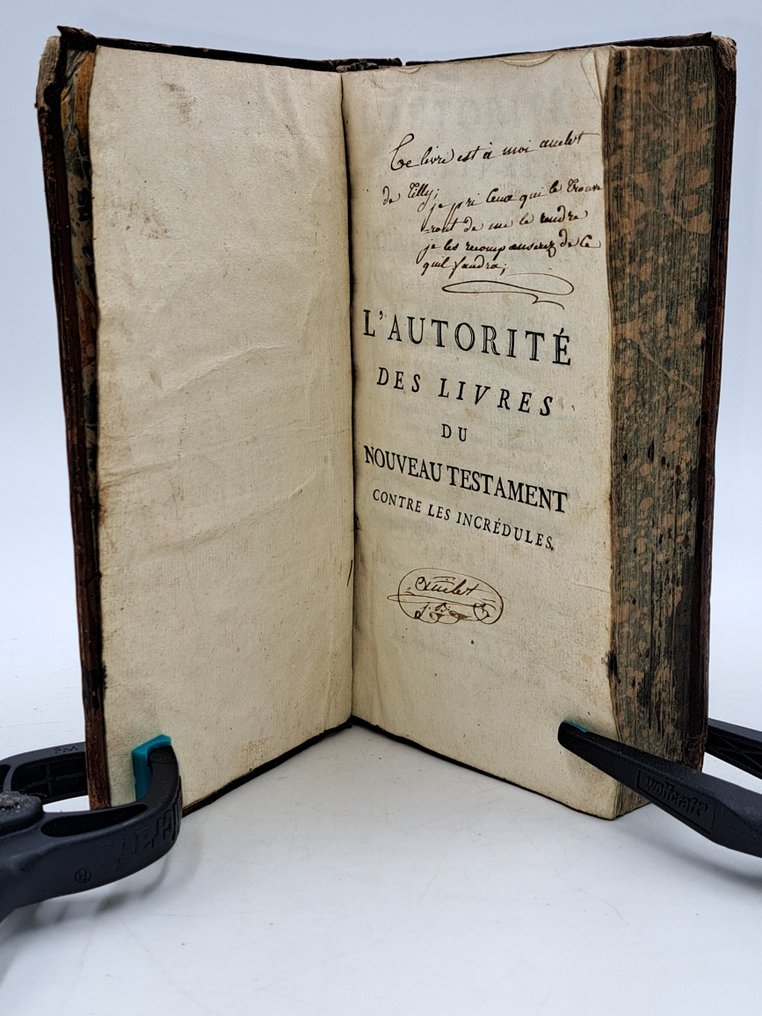 Ce livre est à moi auclet
de Tilly;
je pri Ceux qui le trouve
-ront de me le rendre
je les recompanserez de Ce
quil faudra;
L'AUTORITÉ
DES LIVRES
DU
NOUVEAU TESTAMENT
CONTRE LES INCRÉDULES.
auclet